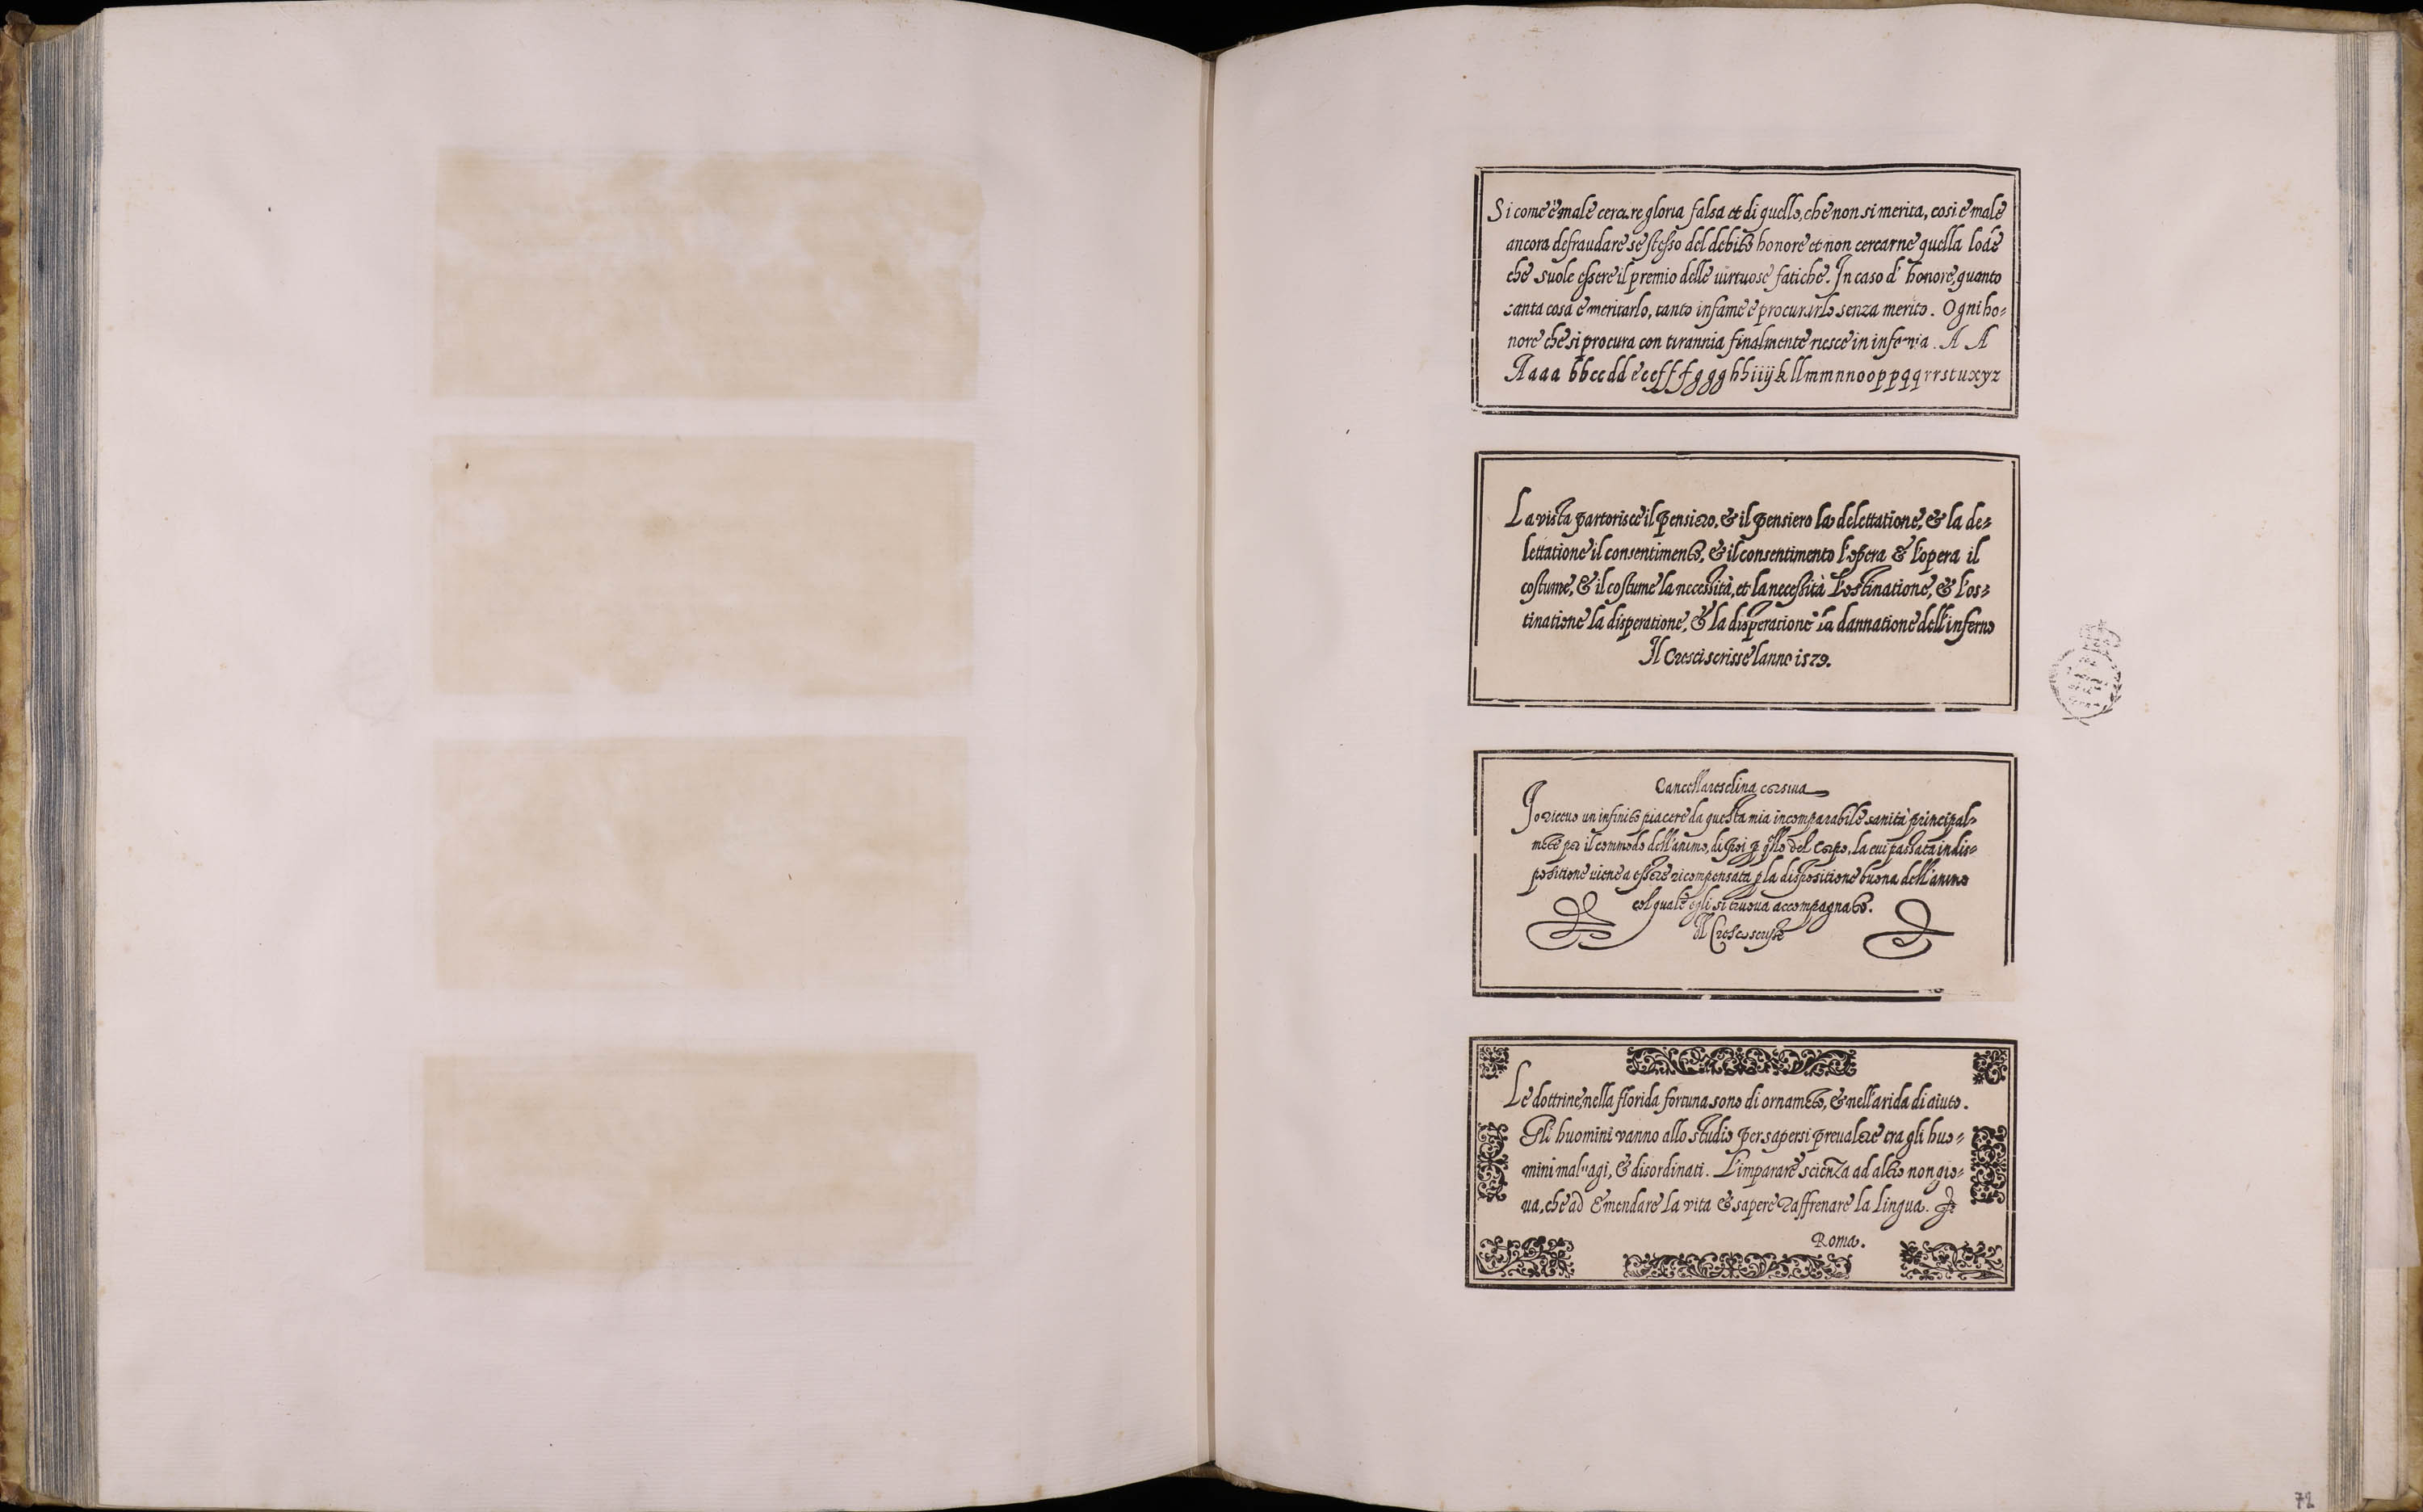 Si come è male cercare gloria falsa et di quello, che non si merita, cosi è male
ancora defraudare se stesso del debito honore et non cercarne quella lode
che suole essere il premio delle uirtuose fatiche. In caso d' honore, quanto
santa cosa è meritarlo, tanto infame è procurarlo senza merito. Ogni ho=
nore che si procura con tirannia finalmente riesce in infamia. A A
Aaaa bbccdd eeefffggghhiiijkllmmnnooppqqrrstuxyz
La vista partorisce il pensiero, & il pensiero la delettatione, & la de=
lettatione il consentimento, & il consentimento l'opera & l'opera il
costume, & il costume la necessità, et la necessità l'ostinatione, & l'os=
tinatione la disperatione, & la disperatione la dannatione dell'inferno
Il Cresci scrisse lanno 1579.
Cancellaresclina corsiua
Io riceuo un infinito piacere da questa mia incomparabile sanità principal=
mēte per il commodo dell'animo, dipoi p q̄llo del corpo, la cui passata indis=
positione uiene a essere ricompensata p la dispositione buona dell'animo
col quale egli si truoua accompagnato.
Il Cresci scrisse
Le dottrine, nella florida fortuna sono di ornamēto, & nell'arida di aiuto.
Gli huomini vanno allo studio per sapersi preualere tra gli huo=
mini maluagi, & disordinati. L'imparare scienza ad altro non gio=
ua, che ad Emendare la vita & sapere raffrenare la lingua.
Roma.
72